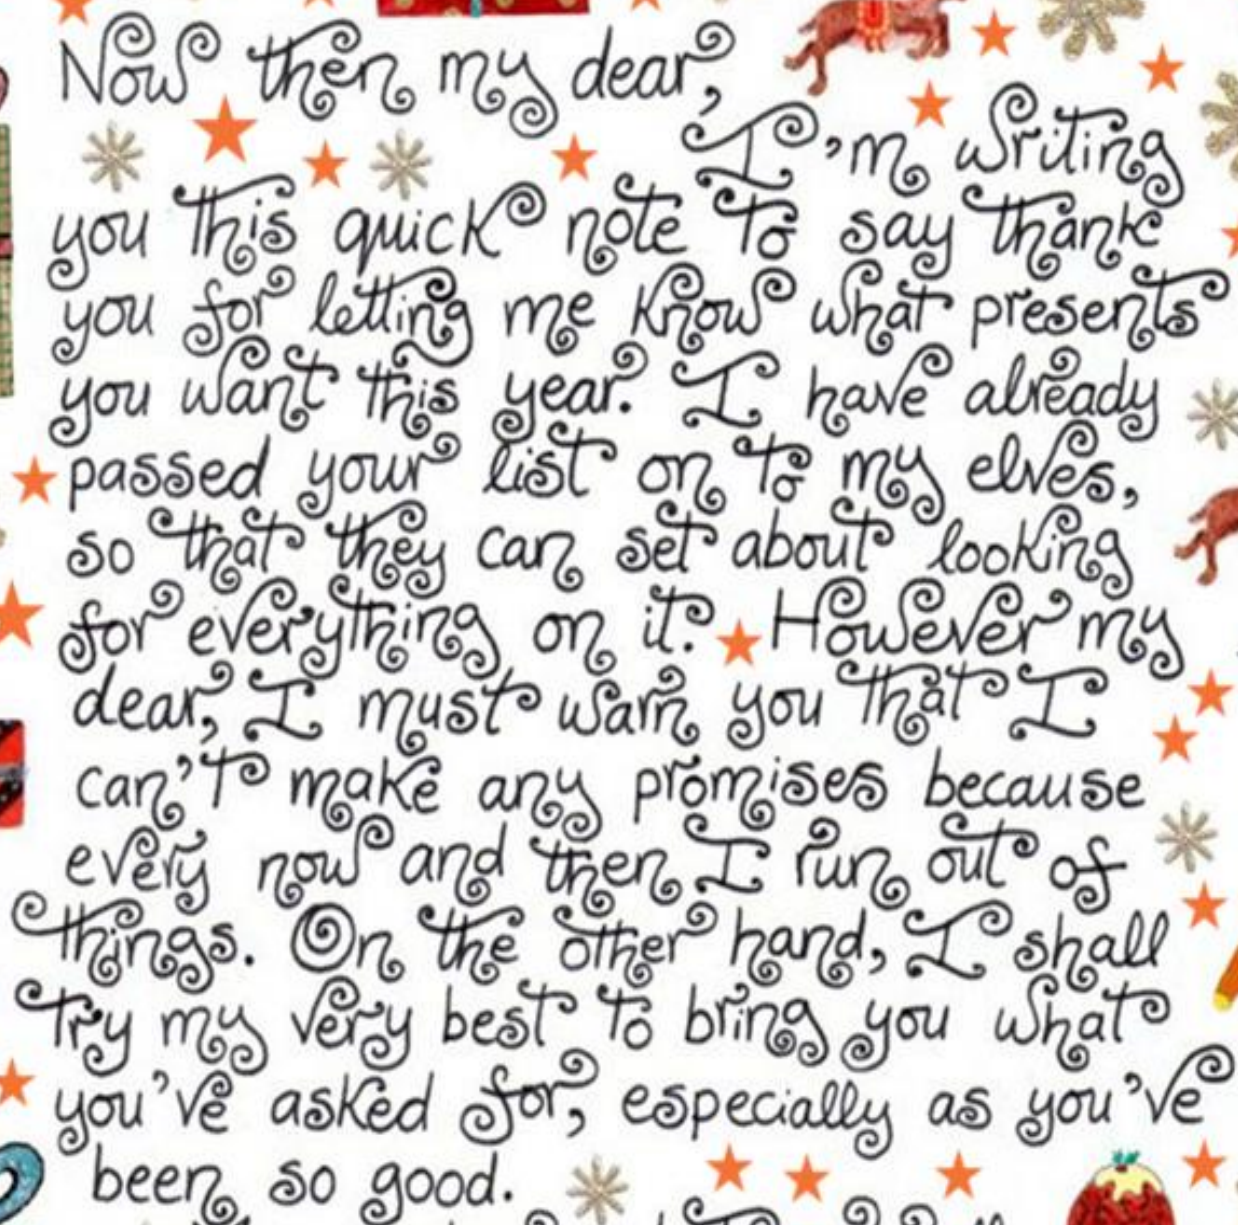 Now then my dear,
I'm writing
you this quick note to say thank
you for letting me know what presents
you want this year. I have already
passed your list on to my elves,
so that they can set about looking
for everything on it. However my
dear, I must warn you that I
can't make any promises because
every now and then I run out of
things. On the other hand, I shall
try my very best to bring you what
you've asked for, especially as you've
been so good.